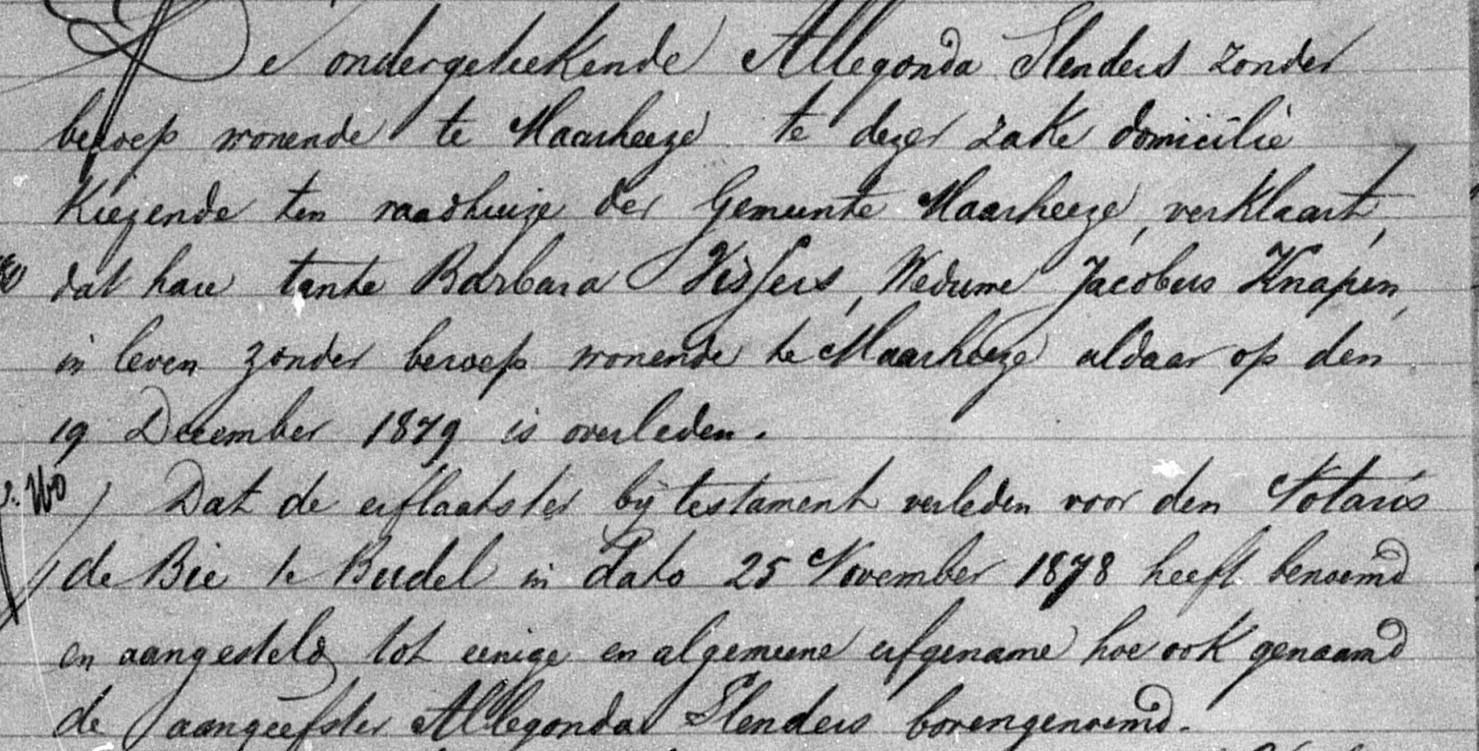 De ondergeteekende Allegonda Slenders zonder
beroep wonende te Maarheeze te dezer zake domicilie
Kiezende ten raadhuize der Gemeente Maarheeze, verklaart,
dat hare tante Barbara Vissers, Weduwe Jacobus Knapen,
in leven zonder beroep wonende te Maarheeze aldaar op den
19 December 1879 is overleden.
Dat de erflaatster bij testament verleden voor den Notaris
de Bie te Budel in dato 25 November 1878 heeft benoemd
en aangesteld tot eenige en algemeene erfgename hoe ook genaamd
de aangeefster Allegonda Slenders bovengenoemd.